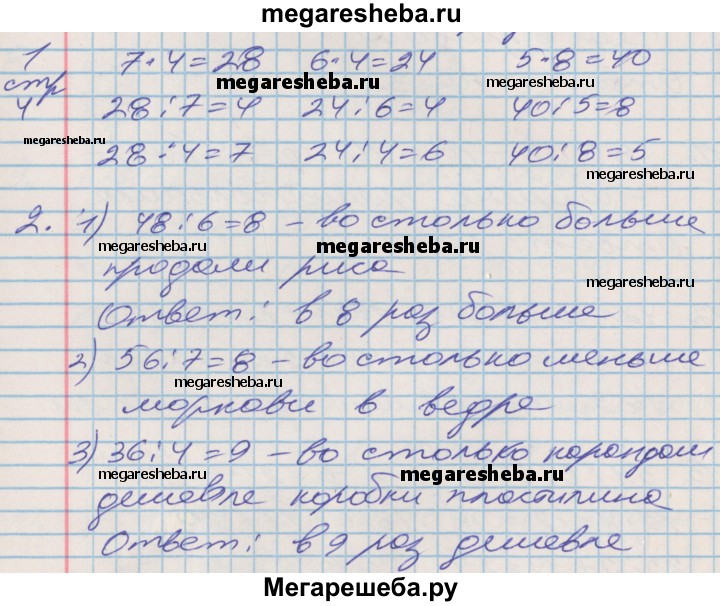 megaresheba.ru
1 7·4=28 6·4=24 5·8=40
стр megaresheba.ru megaresheba.ru
4 28:7=4 24:6=4 40:5=8
megaresheba.ru
28:4=7 24:4=6 40:8=5
megaresheba.ru
2. 1) 48:6=8 – во столько больше
megaresheba.ru megaresheba.ru
продали риса
megaresheba.ru
Ответ: в 8 раз больше
2) 56:7=8 – во столько меньше
megaresheba.ru
моркови в ведре
3) 36:4=9 – во столько карандаш
megaresheba.ru megaresheba.ru
дешевле коробки пластилина
megaresheba.ru megaresheba.ru
Ответ: в 9 раз дешевле
Мегарешеба.ру